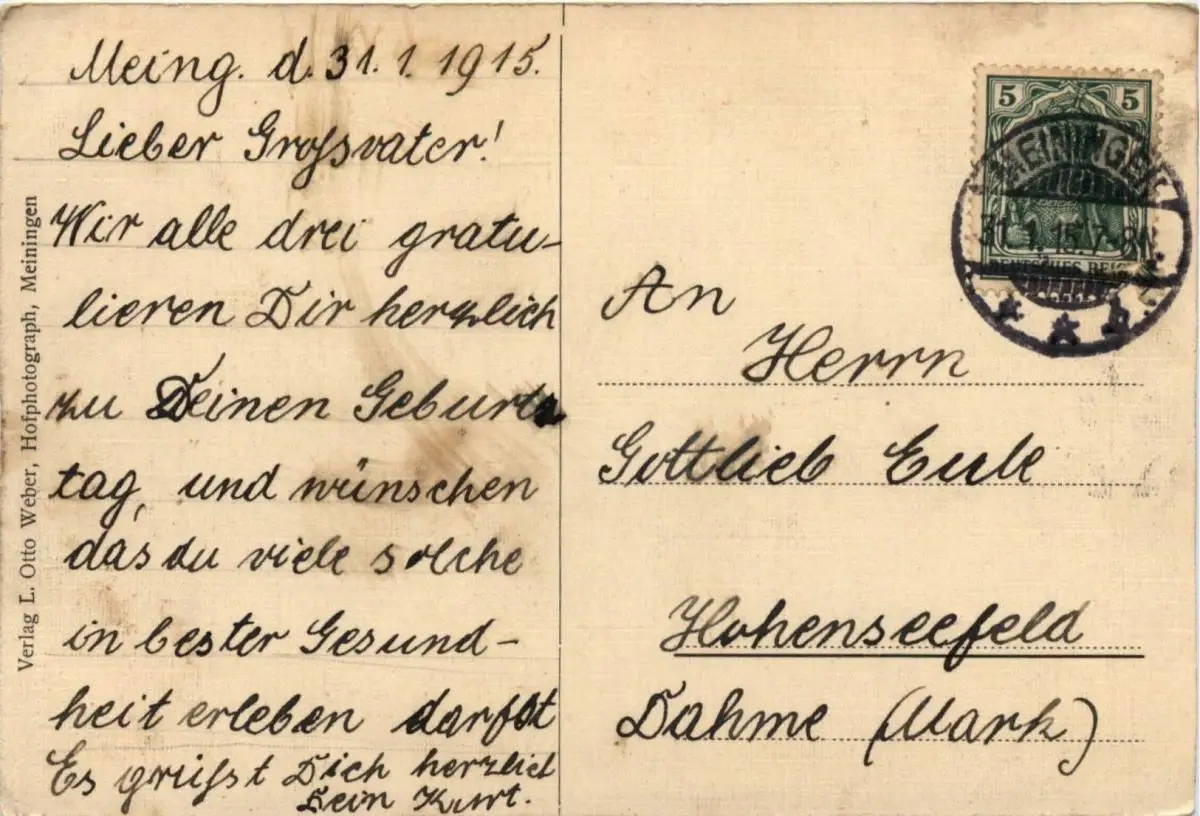 Meing. d. 31. 1. 1915.
Lieber Grossvater!
Wir alle drei gratu-
lieren Dir herzlich
zu Deinen Geburts
tag, und wünschen
das du viele solche
in bester Gesund-
heit erleben darfst
Es grüsst Dich herzlich
Dein Kurt.
Verlag L. Otto Weber, Hofphotograph, Meiningen
5 5
DEUTSCHES REICH
MEININGEN
31. 1. 15. 7-8N.
An
Herrn
Gottlieb Eule
Hohenseefeld
Dahme (Mark)